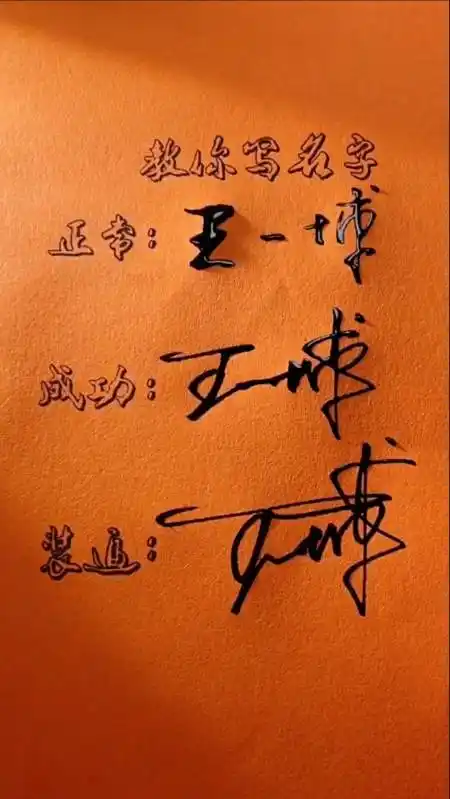 教你写名字
正常：王一博
成功：王一博
装逼：王一博